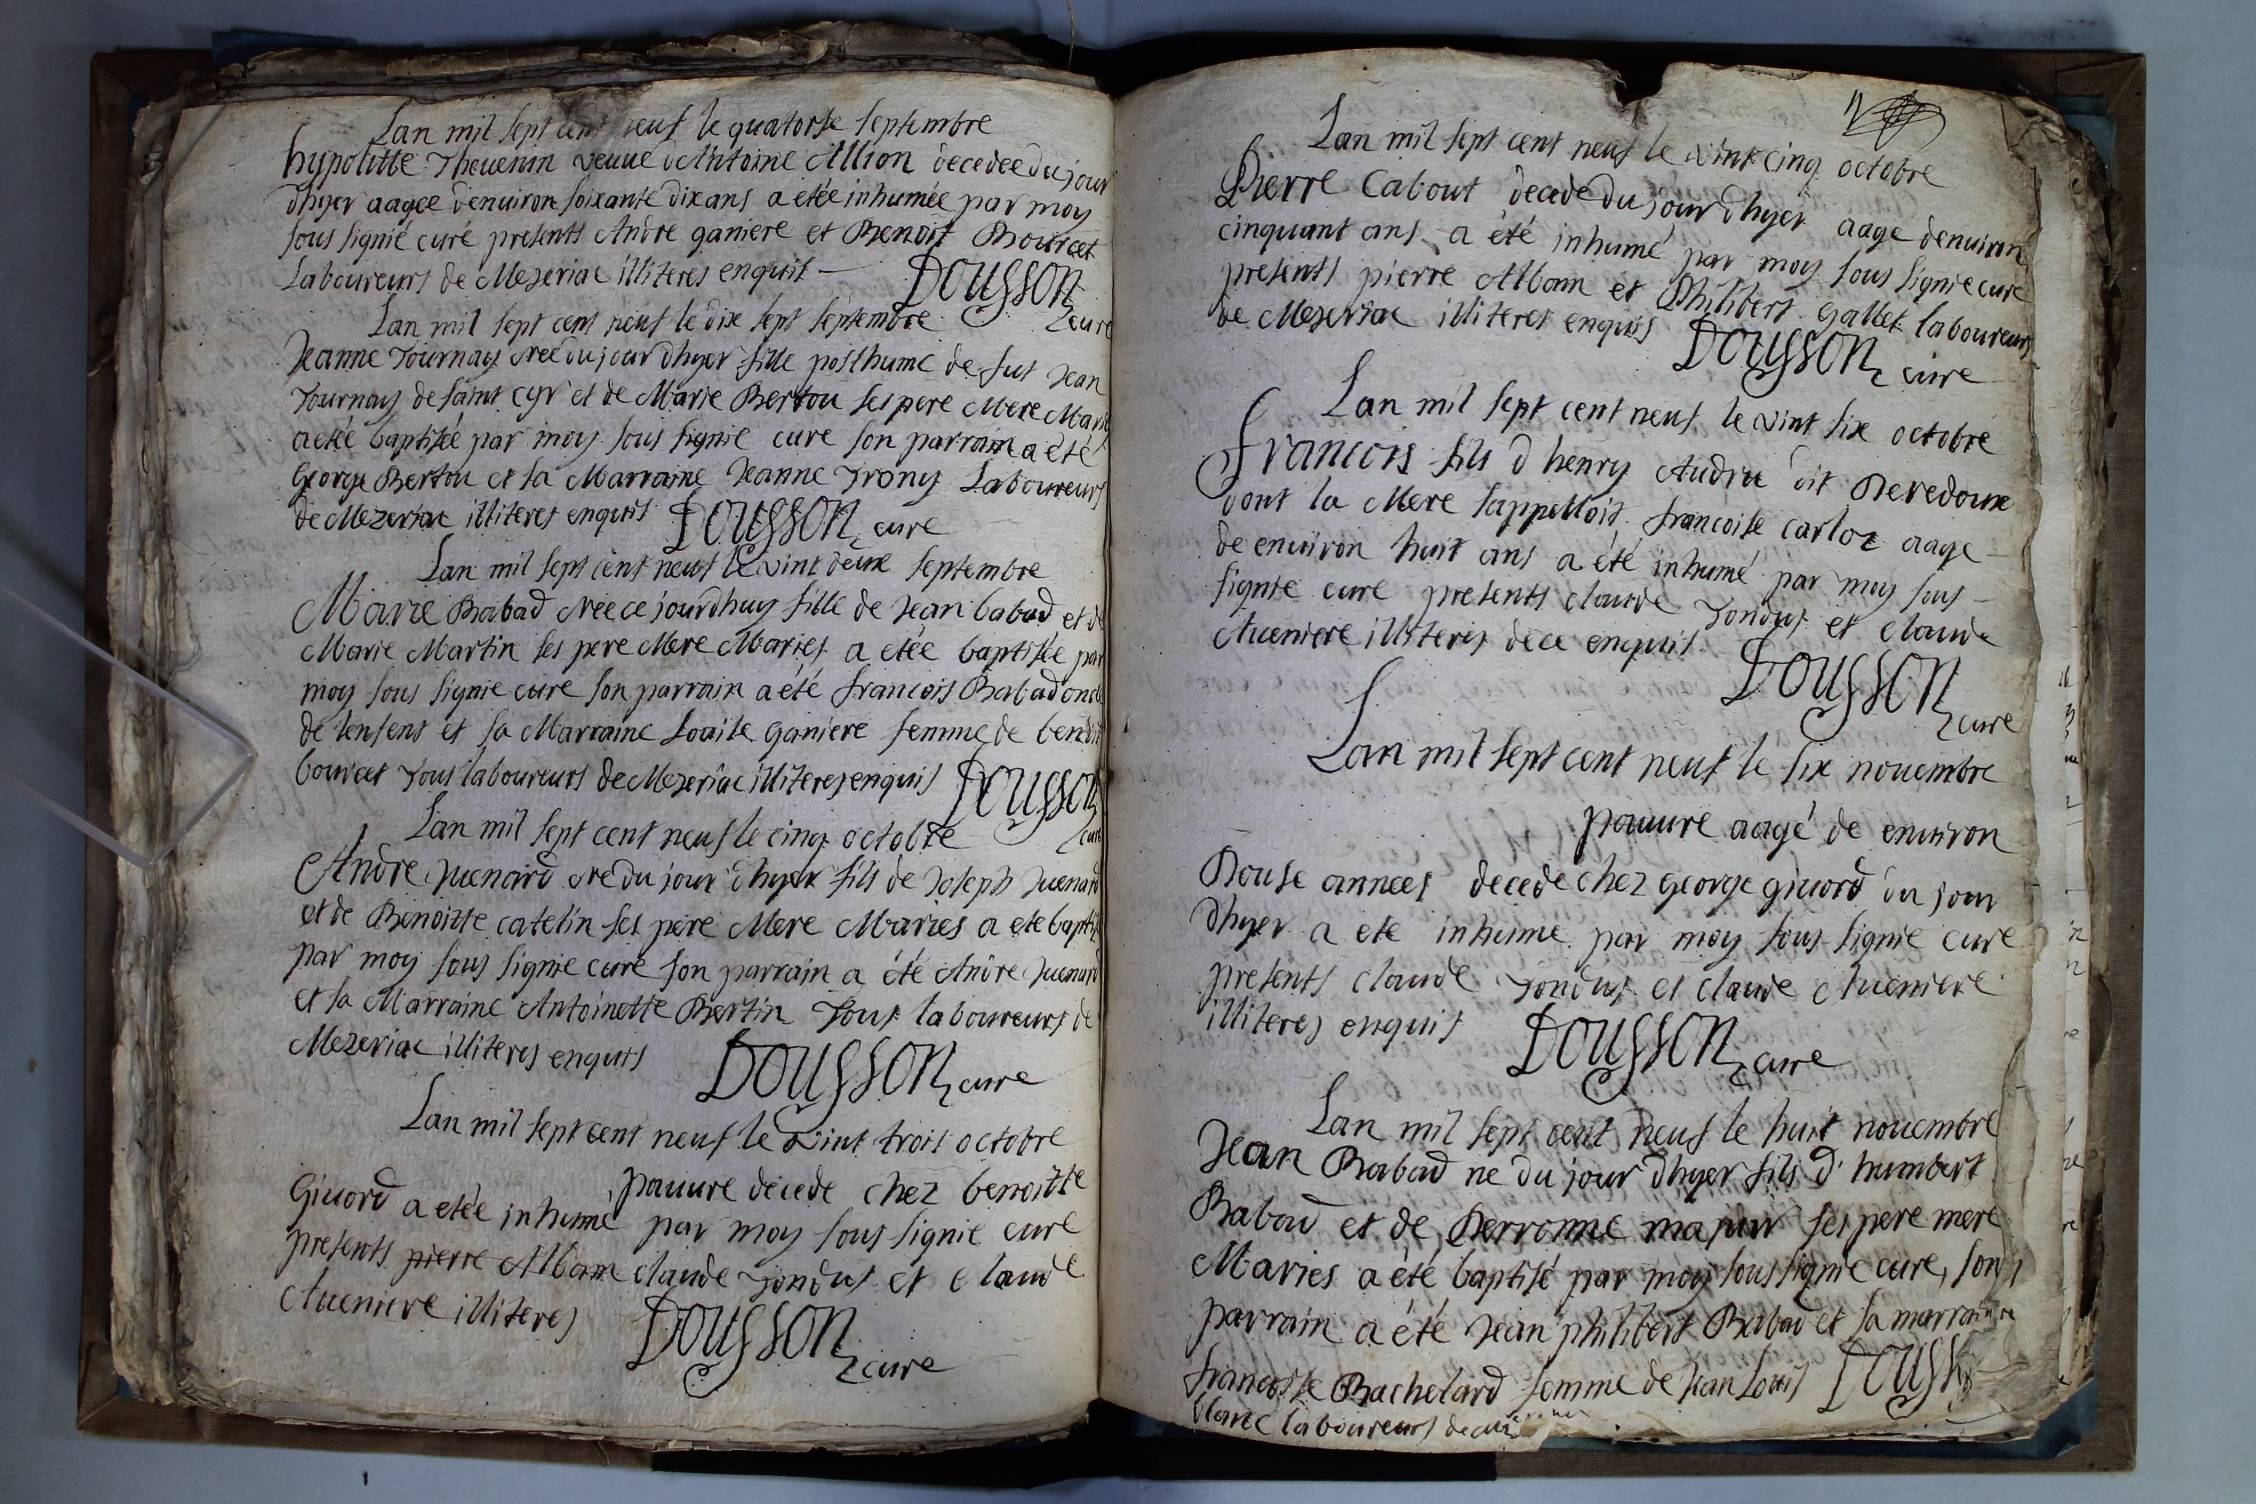 Lan mil sept cent neuf le quatorse septembre
hypolitte Thevenin veuve dAntoine Allion decedee du jour
dhyer aagee denviron soixante dix ans a etée inhumée par moy
sous signié curé presents Andre ganiere et Benoit Bourcet
Laboureurs de Mezeriac illiteres enquis
Dousson
curé
Lan mil sept cent neuf le dix sept septembre
Jeanne Tournay née du jour dhyer fille posthume de fut Jean
Tournay de saint cyr et de Marie Bertou ses pere Mere Mariés
a etée baptisée par moy sous signie cure son parrain a été
George Bertou et sa Marraine Jeanne Trony Laboureurs
de Mezeriac illiteres enquis Dousson cure
Lan mil sept cent neuf le vint deux septembre
Marie Babad née ce jourdhuy fille de Jean babad et de
Marie Martin ses pere Mere Maries a etée baptisée par
moy sous signie cure son parrain a été francois Babad oncle
de lenfent et sa Marraine Louise ganiere femme de benoit
bourcet Tous laboureurs de Mezeriac illiteres enquis Dousson
curé
Lan mil sept cent neuf le cinq octobre
Andre Juenard né du jour dhyer fils de Joseph Juenard
et de Benoitte catelin ses pere Mere Maries a ete baptisé
par moy sous signie cure son parrain a été Andre Juenard
et sa Marraine Antoinette Bertin Tous laboureurs de
Mezeriac illiteres enquis Dousson cure
Lan mil sept cent neuf le vint trois octobre
pauvre decede chez benoitte
Givord a etée inhumé par moy sous signie cure
presents pierre Albam claude Tondus et claude
Aveniere illiteres
Dousson
cure
11
Lan mil sept cent neuf le vint cinq octobre
Pierre Cabout decede du jour dhyer aage denviron
cinquant ans a été inhumé par moy sous signie cure
presents pierre Albam et Philibert Gallet laboureurs
de Mezeriac illiteres enquis Dousson cure
Lan mil sept cent neuf le vint six octobre
francois fils d henry Audru dit Deredoux
dont la Mere sappelloit francoise carloz aage
de environ huit ans a été inhumé par moy sous
signie cure presents claude Tondus et claude
Aveniere illiteres dece enquis Dousson
cure
Lan mil sept cent neuf le six novembre
pauvre aagé de environ
Douse années decede chez George givord du jour
dhyer a ete inhume par moy sous signie cure
presents claude Tondus et claude Aveniere
illiteres enquis Dousson cure
Lan mil sept cent neuf le huit novembre
Jean Babad ne du jour dhyer fils d' humbert
Babad et de Perronne ses pere mere
Maries a été baptisé par moy sous signie cure, son
parrain a été Jean philibert Babad et sa marraine
francoise Bachelard femme de Jean Louis Dousson
blanc laboureurs